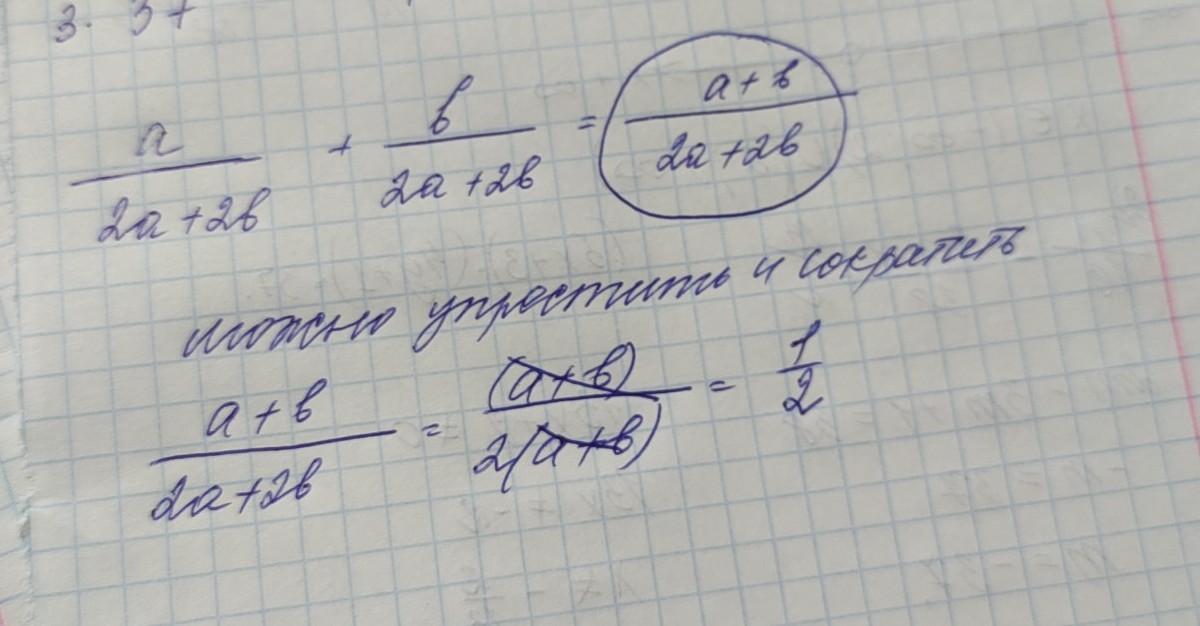 3. 37
a/(2a+2b) + b/(2a+2b) = (a+b)/(2a+2b)
можно упростить и сократить
(a+b)/(2a+2b) = (a+b)/2(a+b) = 1/2